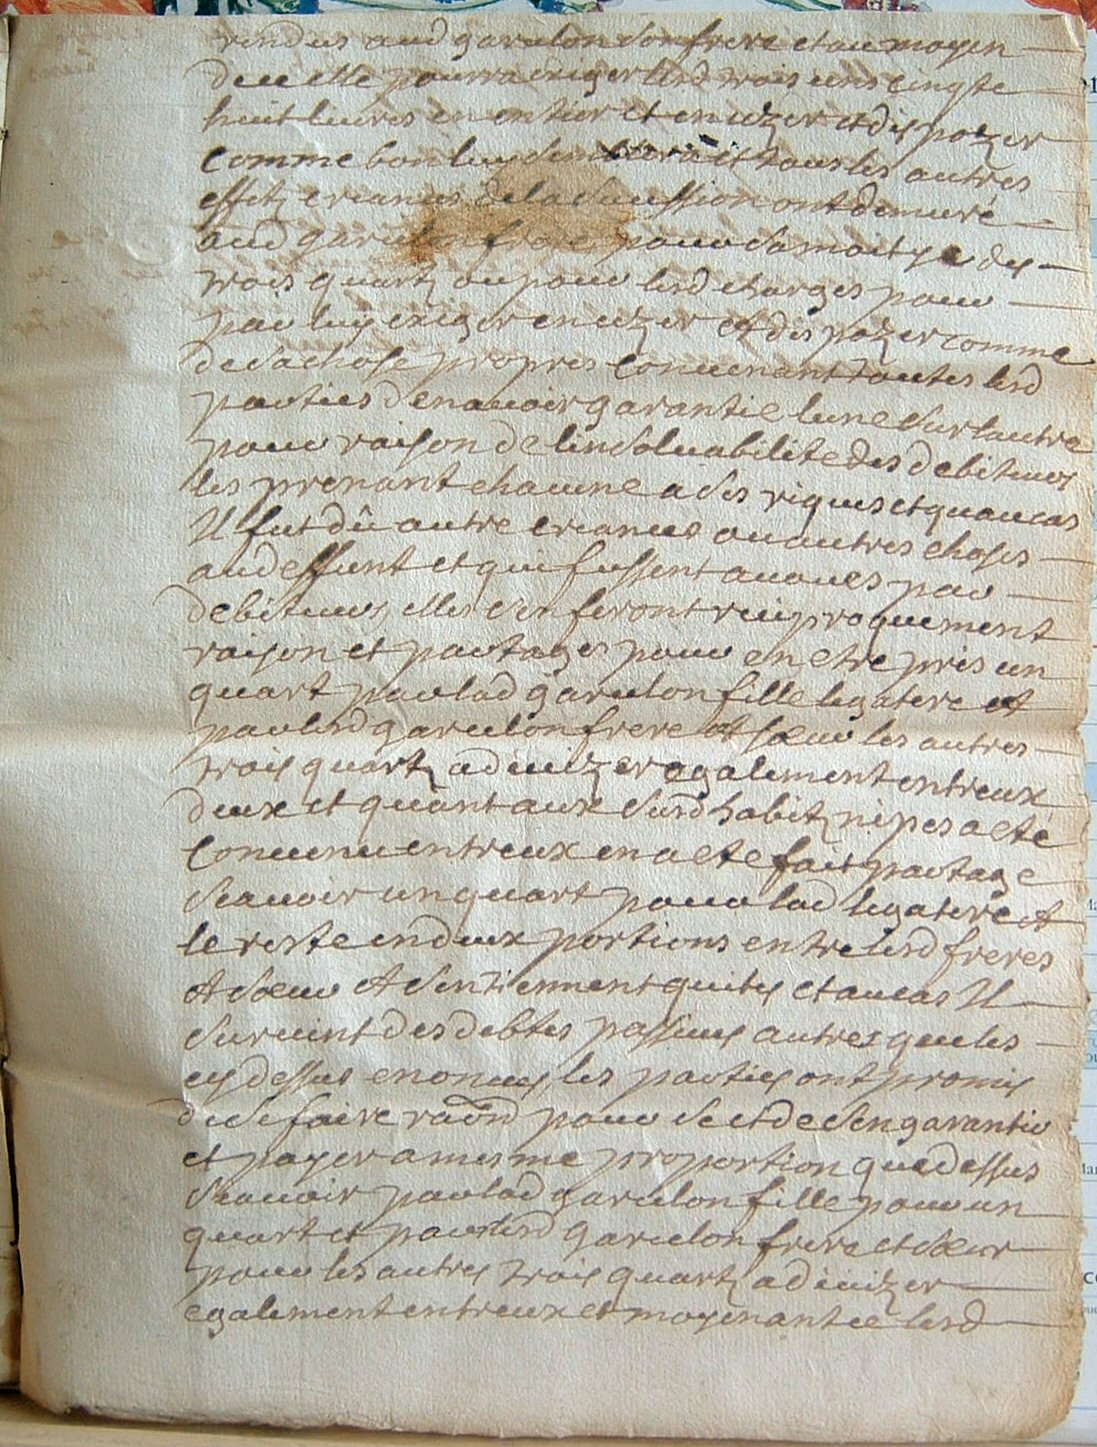 rendus aud garulon son frere et au moyen
de ce elle pourra exiger lesd trois cens cinqte
huit livres en entier et en uzer et dispozer
comme bon luy semblera et tous les autres
effetz creances de la sucession ont demuré
aud garulon frere pour sa moitye des
trois quartz ou pour lesd charges pour
par luy exiger en uzer et dispozer comme
de sa chose propres convenant toutes lesd
parties d'en avoir garantie l'une sur lautre
pour raison de linsolvabilite des debiteurs
les prenant chacune a ses riques et qu'au cas
Il fut dû autre creances ou autres choses
au deffunt et qui fussent avoues par
debiteurs elles s'en feront reciproquement
raison et partages pour en etre pris un
quart par lad garulon fille legatere et
par lesd garulon frere et sœur les autres
trois quartz a divizer egalement entreux
deux et quant aux susd habitz nipes a eté
convenu entreux en a eté fait partage
scavoir un quart pour lad legatere et
le reste en deux portions entre lesd freres
et sœur et s'en tiennent quites et au cas Il
survint des debtes passives autres que les
cy dessus enonces les parties ont promis
de se faire raōn pour ce et de s'en garantir
et payer a mesme proportion que dessus
scavoir par lad garulon fille pour un
quart et par lesd garulon frere et sœur
pour les autres trois quartz a divizer
egalement entreux et moyenant ce lesd